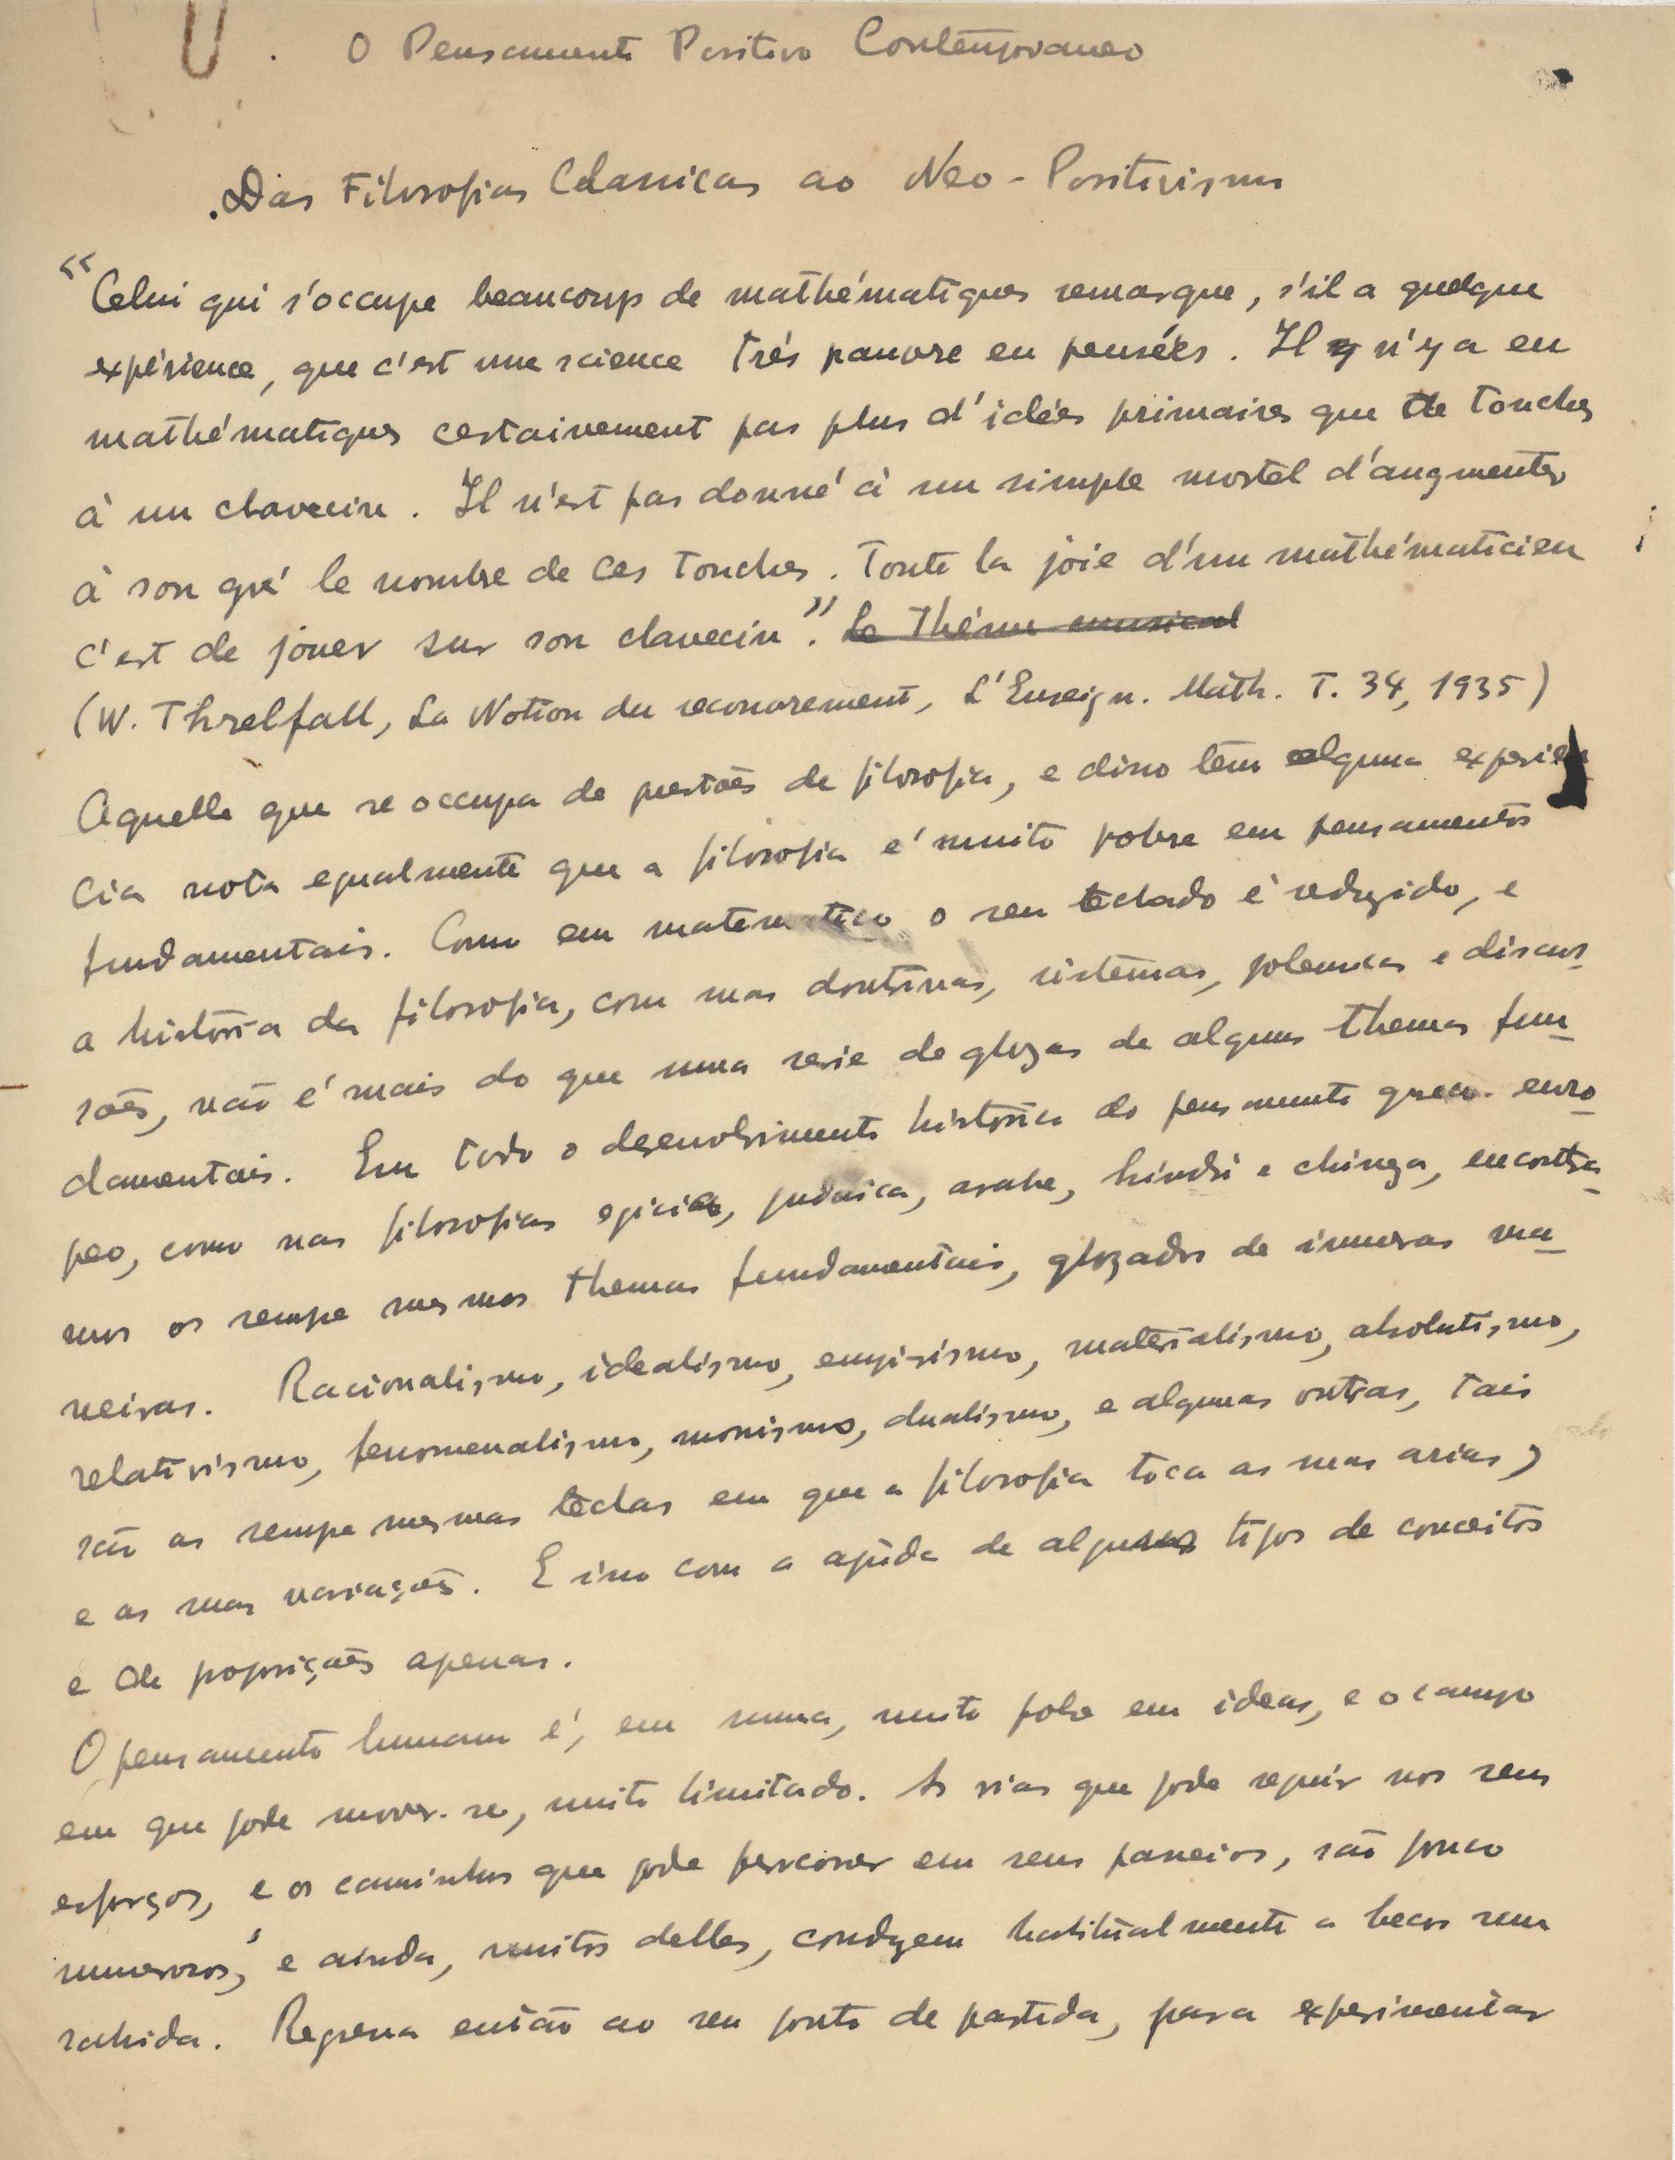 O Pensamento Positivo Contemporaneo
Das Filosofias Classicas ao Neo-Positivismo
"Celui qui s'occupe beaucoup de mathématiques remarque, s'il a quelque
expérience, que c'est une science très pauvre en pensées. Il n'y a en
mathématiques certainement pas plus d'idées primaires que de touches
à un clavecin. Il n'est pas donné à un simple mortel d'augmenter
à son gré le nombre de ces touches. Toute la joie d'un mathématicien
c'est de jouer sur son clavecin". Le Thème musical
(W. Threlfall, La Notion du recouvrement, L'Enseign. Math. T. 34, 1935)
Aquelle que se occupa de questões de filosofia, e disso tem alguma experien
cia nota egualmente que a filosofia é muito pobre em pensamentos
fundamentais. Como em matematica o seu teclado é reduzido, e
a história da filosofia, com suas doutrinas, sistemas, polemicas e discus-
sões, não é mais do que uma serie de glozas de alguns themas fun-
damentais. Em todo o desenvolvimento historico do pensamento greco-euro-
peo, como nas filosofias egicia, judaica, arabe, hindú e chineza, encontra-
mos os sempre mesmos themas fundamentais, glozados de inumeras ma-
neiras. Racionalismo, idealismo, empirismo, materialismo, absolutismo,
relativismo, fenomenalismo, monismo, dualismo, e algumas outras, tais
são as sempre mesmas teclas em que a filosofia toca as suas arias,
e as suas variações. E isso com a ajuda de alguns tipos de conceitos
e de proposições apenas.
O pensamento humano é, em suma, muito pobre em ideas, e o campo
em que pode mover-se, muito limitado. As vias que pode seguir nos seus
esforços, e os caminhos que pode percorrer em seus passeios, são pouco
numerosos, e ainda, muitos delles, conduzem habitualmente a becos sem
sahida. Regressa então ao seu ponto de partida, para experimentar